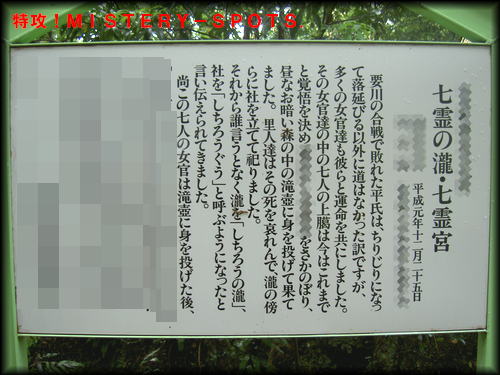 特攻！MISTERY-SPOTS
七霊の瀧・七霊宮
平成元年十二月二十五日
要川の合戦で敗れた平氏は、ちりぢりになっ
て落延びる以外に道はなかった訳ですが、
多くの女官達も彼らと運命を共にしました。
その女官達の中の七人の上臈は今はこれまで
と覚悟を決め
をさかのぼり、
昼なお暗い森の中の滝壺に身を投げて果て
ました。里人達はその死を哀れんで、瀧の傍
らに社を立てて祀りました。
それから誰言うとなく瀧を「しちろうの瀧」、
社を「しちろうぐう」と呼ぶようになったと
言い伝えられてきました。
尚この七人の女官は滝壺に身を投げた後、